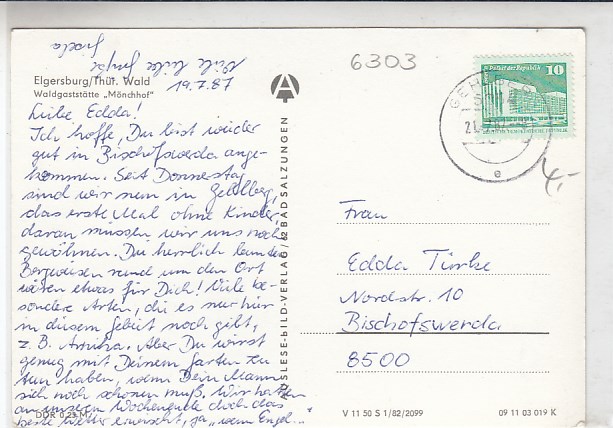 Elgersburg/Thür. Wald
Waldgaststätte „Mönchhof"
19.7.87
Liebe Edda!
Ich hoffe, Du bist wieder
gut in Bischofswerda ange-
kommen. Seit Donnerstag
sind wir nun in
das erste Mal ohne Kinder,
daran müssen wir uns noch
gewöhnen. Die herrlich bunten
Bergwiesen rund um den Ort
wären etwas für Dich! Viele be-
sondere Arten, die es nur hier
in diesem Gebiet noch gibt,
z.B. Arnika. Aber Du wirst
genug mit Deinem Garten zu
tun haben, wenn Dein Mann
sich noch schonen muß. Wir hatten
an unserem Wochenende doch das
beste Wetter erwischt, ja „wenn Engel..."
Viele liebe Grüße
Gisela
DDR 0,25 M
AUSLESE-BILD-VERLAG/62 BAD SALZUNGEN
6303
Palast der Republik
10
DEUTSCHE DEMOKRATISCHE REPUBLIK
e
4,-
Frau
Edda Türke
Nordstr. 10
Bischofswerda
8500
V 11 50 S 1/82/2099
09 11 03 019 K